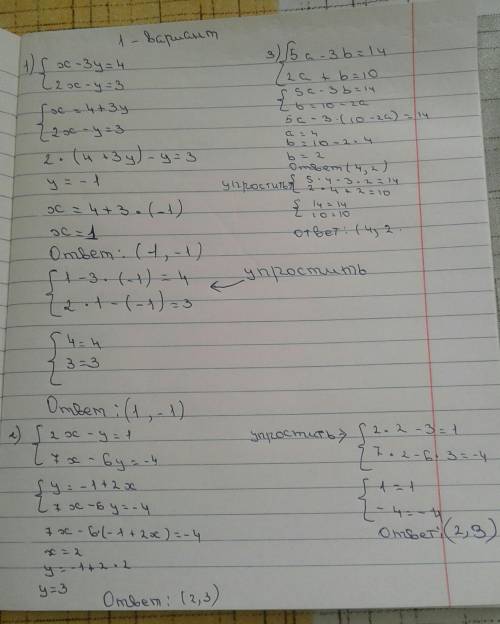 1 - вариант
1) { x - 3y = 4
2x - y = 3
{ x = 4 + 3y
2x - y = 3
2 * (4 + 3y) - y = 3
y = -1
x = 4 + 3 * (-1)
x = 1
Ответ: (1, -1)
{ 1 - 3 * (-1) = 4
2 * 1 - (-1) = 3
← упростить
{ 4 = 4
3 = 3
Ответ: (1, -1)
3) { 5a - 3b = 14
2a + b = 10
{ 5a - 3b = 14
b = 10 - 2a
5a - 3 * (10 - 2a) = 14
a = 4
b = 10 - 2 * 4
b = 2
Ответ (4, 2)
упростить { 5 * 4 - 3 * 2 = 14
2 * 4 + 2 = 10
{ 14 = 14
10 = 10
Ответ: (4, 2
2) { 2x - y = 1
7x - 6y = -4
{ y = -1 + 2x
7x - 6y = -4
7x - 6(-1 + 2x) = -4
x = 2
y = -1 + 2 * 2
y = 3
Ответ: (2, 3)
упростить > { 2 * 2 - 3 = 1
7 * 2 - 6 * 3 = -4
{ 1 = 1
-4 = -4
Ответ: (2, 3)